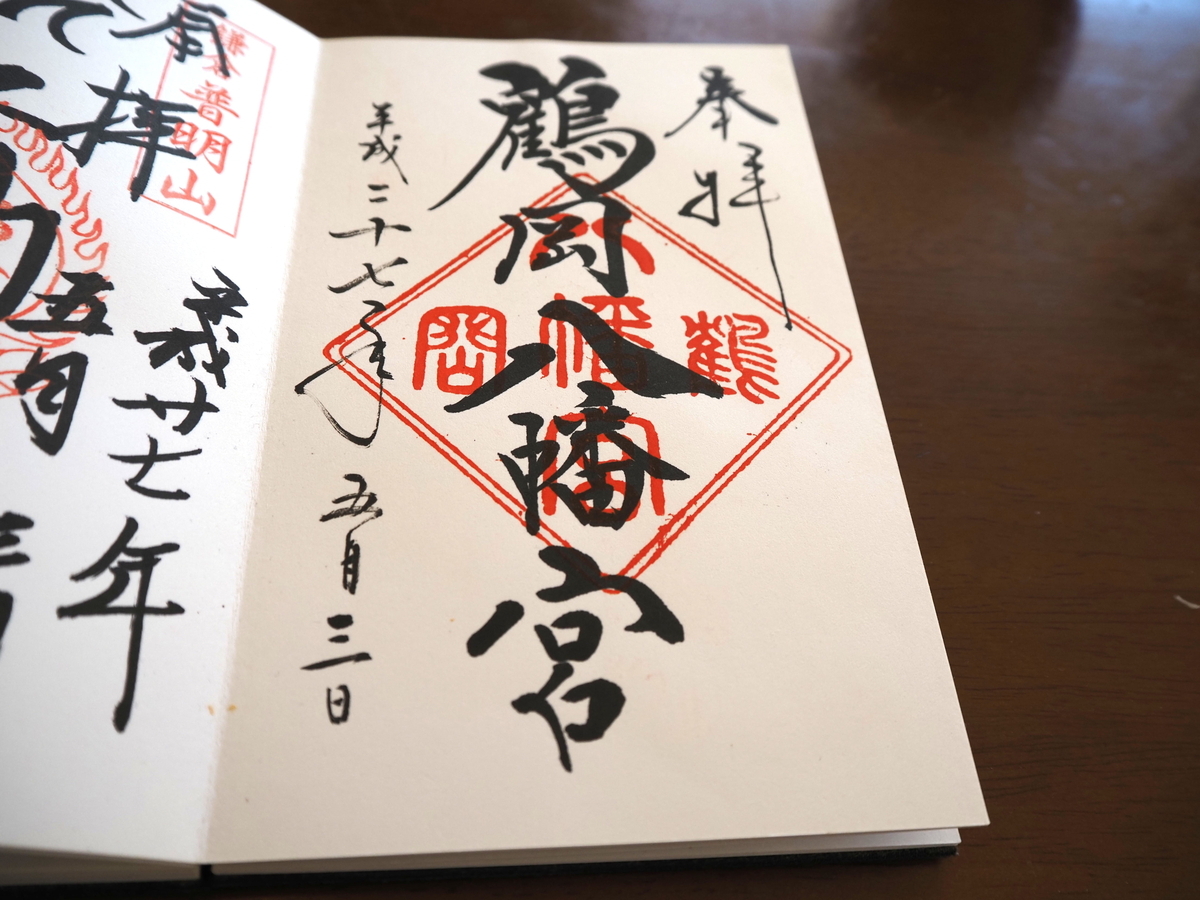 奉拝
鶴岡八幡宮
平成二十七年五月三日
鶴
幡
岡
宮
鎌倉
普明山
拝
平成廿七年
五月